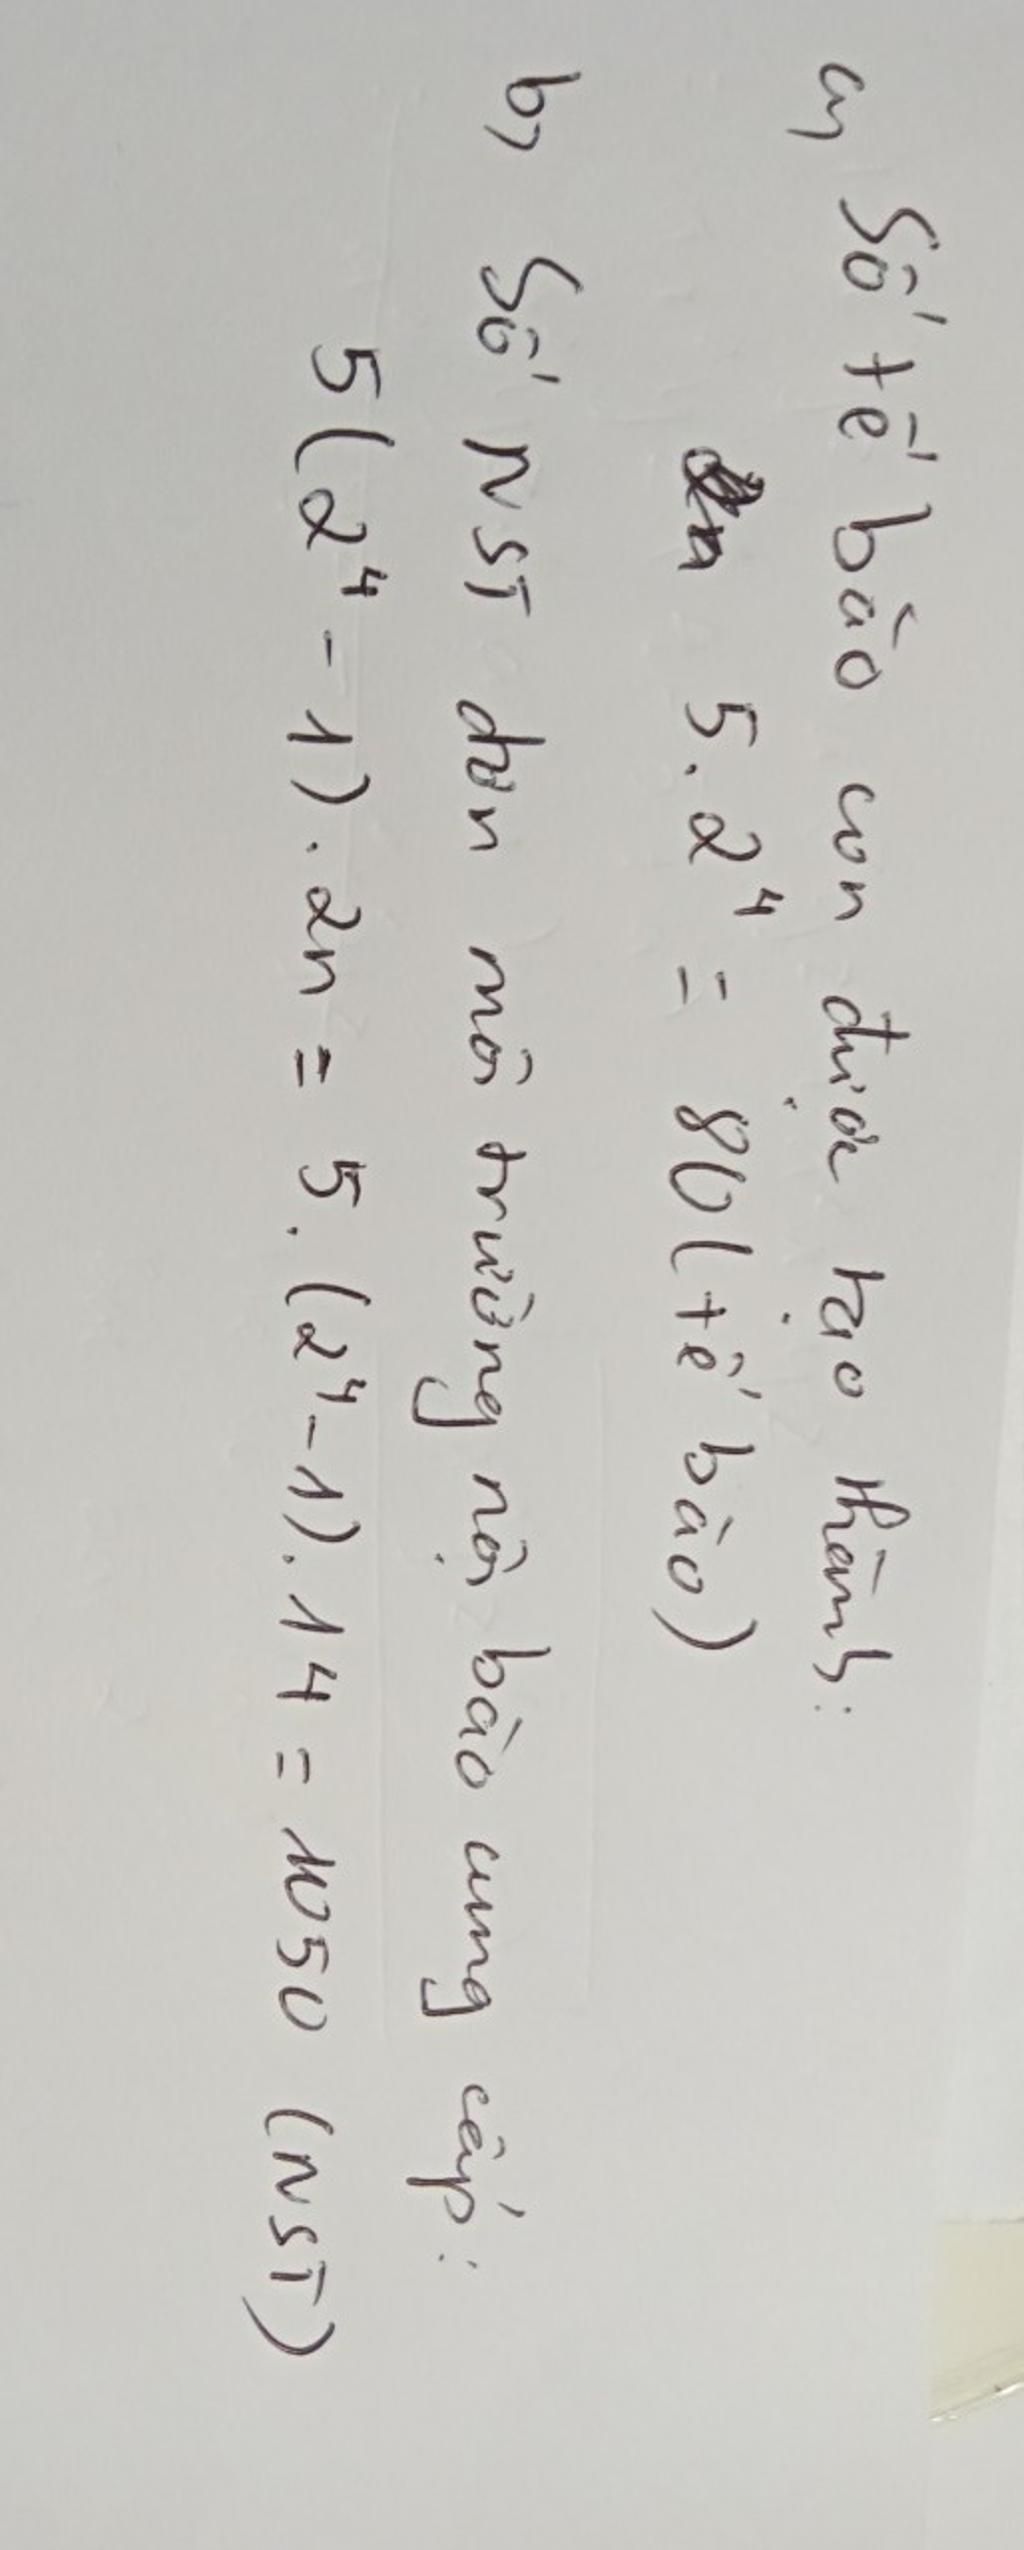 a, Số tế bào con được tạo thành:
5.2⁴ = 80 (tế bào)
b, Số NST đơn môi trường nội bào cung cấp:
5(2⁴-1).2n = 5.(2⁴-1).14 = 1050 (NST)